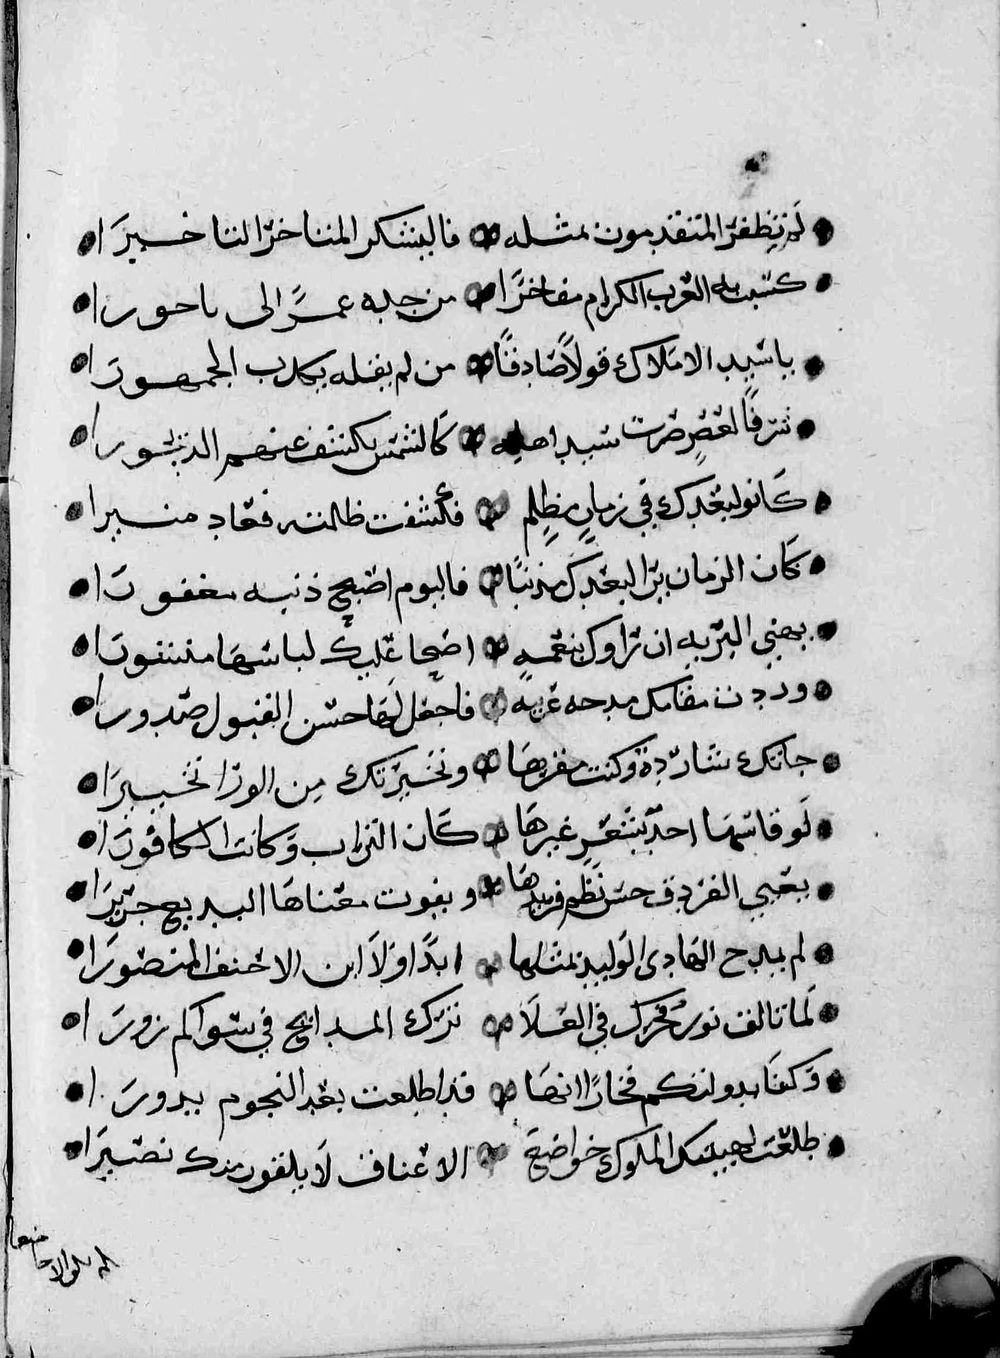 لم يظفر المتقدمون بمثله فاليشكر المتاخر التاخيرا
كسبت به العرب الكرام مفاخرًا من جده عمرًا الى باحورا
ياسيد الاملاك قولاً صادقًا من لم يقله يكذب الجمهورا
شرفًا لعصرٍ صرت سيد اهله كالشمس يكشف عنهم الديجورا
كانو لبعدك في زمانٍ مظلم فكشفت ظلمته فعاد منيرا
كان الزمان يرا لبعدك مذنبًا فاليوم اصبح ذنبه مغفورا
يهني البريه ان تراوك بنعمةٍ اضحا عليك لباسها منشورا
وردت مقامك مدحه عربيه فاجعل لها حسن القبول صدورا
جاتك شاردة وكنت مقرها وتخيرتك من الورا تخييرا
لو قاسها احد بشعر غيرها كان التراب وكانت الكافورا
يعيي الفرزدق حسن نظم فريدها ويفوت معناها البديع جريرا
لم يمدح الهادي الوليد بمثلها ابدًا ولا ابن الاحنف المنصورا
لما تالف نور فخرك في العلا نترك المدايح في سواكم زورا
وكفا بدولتكم فخارًا انها قد اطلعت بعد النجوم بدورا
طلعت لهيبتك الملوك خواضع الاعناق لا يلقون منك نصيرا